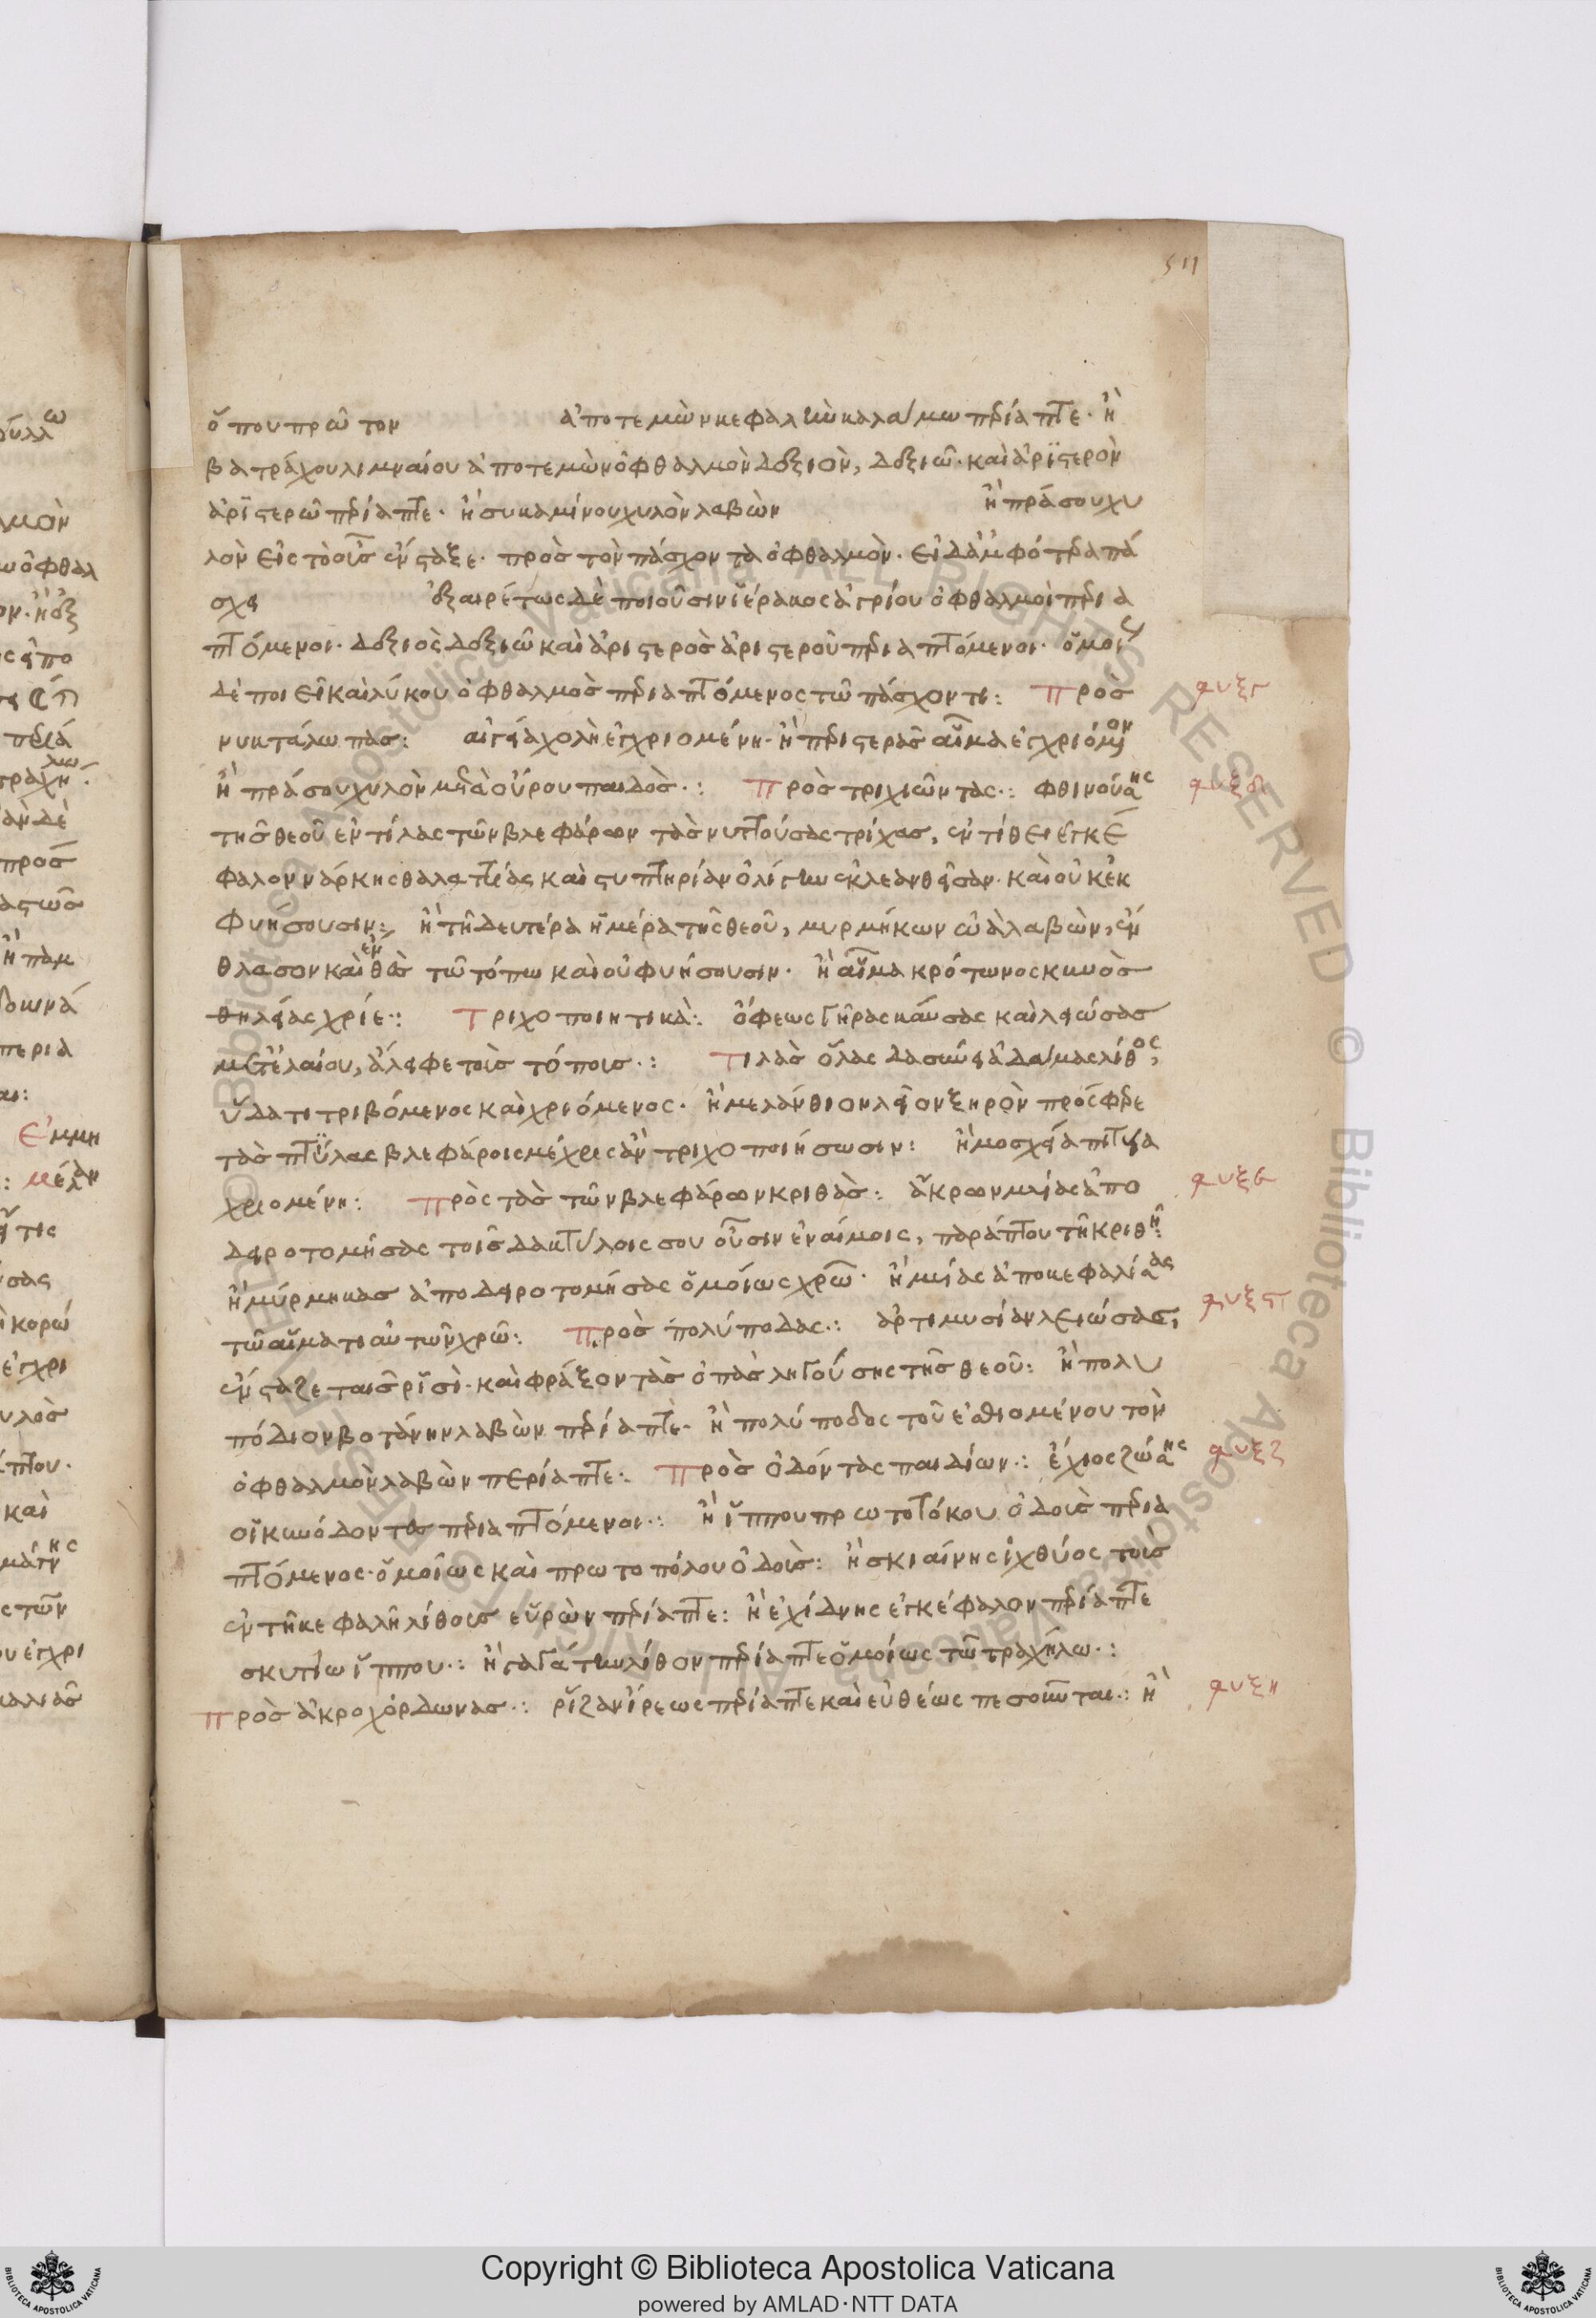 511
ὅπου πρῶτον ἀποτεμὼν κεφαλὴν καλάμω περίαπτε· ἢ
βατράχου λιμναίου ἀποτεμὼν ὀφθαλμὸν δεξιὸν, δεξιῶ· καὶ ἀρϊστερὸν
ἀρϊστερῶ περίαπτε· ἢ συκαμίνου χυλὸν λαβὼν ἢ πράσου χυ
λὸν εἰς τὸ οὖς ἔνσταξε· πρὸς τὸν πάσχοντα ὀφθαλμὸν· εἰ δ' ἀμφότερα πά
σχει ἐξαιρέτως δὲ ποιοῦσιν ἱέρακος ἀγρίου ὀφθαλμοὶ περια
πτόμενοι· δεξιὸς δεξιῶ καὶ ἀριστερὸς ἀριστεροῦ περιαπτόμενοι· ὁμοί
δὲ ποιεῖ καὶ λύκου ὀφθαλμὸς περιαπτόμενος τῶ πάσχοντι: Πρὸς φυξγ
νυκτάλωπας: αἰγεία χολὴ ἐγχριομένη· ἢ περιστερᾶς αἷμα ἐγχριόμενον
ἢ πράσου χυλὸν μετὰ οὔρου παιδὸς·: Πρὸς τριχιῶντας·: φθινούσης φυξδ
τῆς θεοῦ ἐντίλας τῶν βλεφάρων τὰς νυττούσας τρίχας, ἐντίθει ἐγκέ
φαλον νάρκης θαλαττίας καὶ στυπτηρίαν ὀλίγην ἐκλεανθεῖσαν· καὶ οὐκ ἐκ
φυήσουσιν: ἢ τῆ δευτέρα ἡμέρα τῆς θεοῦ, μυρμήκων ὠὰ λαβὼν, ἔν
θλασον καὶ ἐνθὲς τῶ τόπω καὶ οὐ φυήσουσιν· ἢ αἷμα κρότωνος κυνὸς
θηλείας χρίε·: Τριχοποιητικά: ὄφεως γῆρας καύσας καὶ λειώσας
μετ' ἐλαίου, ἄλειφε τοὺς τόπους·: Τιλὰς ὅλας δασύνει ἀδάμας λίθος,
ὕδατι τριβόμενος καὶ χριόμενος· ἢ μελάνθιον λεῖον ξηρὸν πρόσφερε
τὰς πτύλας βλεφάροις μέχρις ἂν τριχοποιήσωσιν: ἢ μοσχεία πιτύα
χριομένη: Πρὸς τὰς τῶν βλεφάρων κριθὰς: ἄκρων μυίας ἀπο φυξε
δειροτομήσας τοῖς δακτύλοις σου οὖσιν ἐναίμοις, παράπτου τῆ κριθῆ:
ἢ μύρμηκας ἀποδειροτομήσας ὁμοίως χρῶ· ἢ μυίας ἀποκεφαλίσας
τῶ αἵματι αὐτῶν χρῶ: Πρὸς πολύποδας·: ἀρτιμυσίαν λειώσας, φυξϛ
ἔνσταζε ταῖς ρϊσὶ· καὶ φράξον τὰς ὀπὰς ληγούσης τῆς θεοῦ: ἢ πολυ
πόδιον βοτάνην λαβὼν περίαπτε· ἢ πολύποδος τοῦ ἐσθιομένου τὸν
ὀφθαλμὸν λαβὼν περίαπτε: Πρὸς ὀδόντας παιδίων·: ἔχιος ζώσης φυξζ
οἱ κυνόδοντες περιαπτόμενοι·: ἢ ἵππου πρωτοτόκου ὀδοὺς περια
πτόμενος· ὁμοίως καὶ πρωτοπόλου ὀδοὺς: ἢ σκιαίνης ἰχθύος τοὺς
ἐν τῆ κεφαλῆ λίθους εὑρὼν περίαπτε: ἢ ἐχίδνης ἐγκέφαλον περίαπτε
σκυτίω ἵππου·: ἢ γαγάτην λίθον περίαπτε ὁμοίως τῶ τραχήλω·:
Πρὸς ἀκροχόρδωνας·: ρίζαν ἴρεως περίαπτε καὶ εὐθέως πεσοῦνται·: ἢ φυξη
Copyright © Biblioteca Apostolica Vaticana
powered by AMLAD·NTT DATA